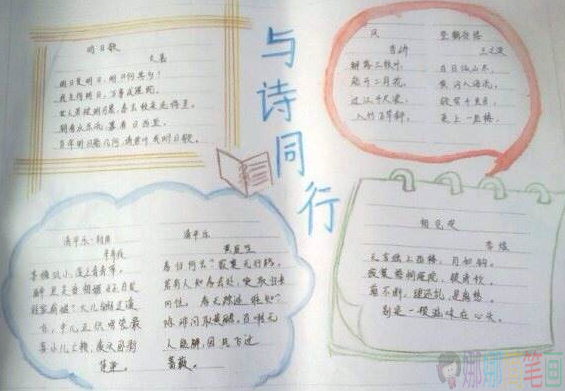 明日歌
文嘉
明日复明日，明日何其多！
我生待明日，万事成蹉跎。
世人若被明日累，春去秋来老将至。
朝看水东流，暮看日西坠。
百年明日能几何，请君听我明日歌。
与诗同行
风
李峤
解落三秋叶，
能开二月花。
过江千尺浪，
入竹万竿斜。
登鹳雀楼
王之涣
白日依山尽，
黄河入海流。
欲穷千里目，
更上一层楼。
清平乐·村居
辛弃疾
茅檐低小，溪上青青草。
醉里吴音相媚好，白发
谁家翁媪？大儿锄豆溪
东，中儿正织鸡笼。最
喜小儿亡赖，溪头卧剥
莲蓬。
清平乐
黄庭坚
春归何去？寂寞无行路。
若有人知春去处，唤取归来
同住。春无踪迹谁知？
除非问取黄鹂，百啭无
人能解，因风飞过
蔷薇。
相见欢
李煜
无言独上西楼，月如钩。
寂寞梧桐深院，锁清秋。
剪不断，理还乱，是离愁。
别是一般滋味在心头。
娜娜 笔画